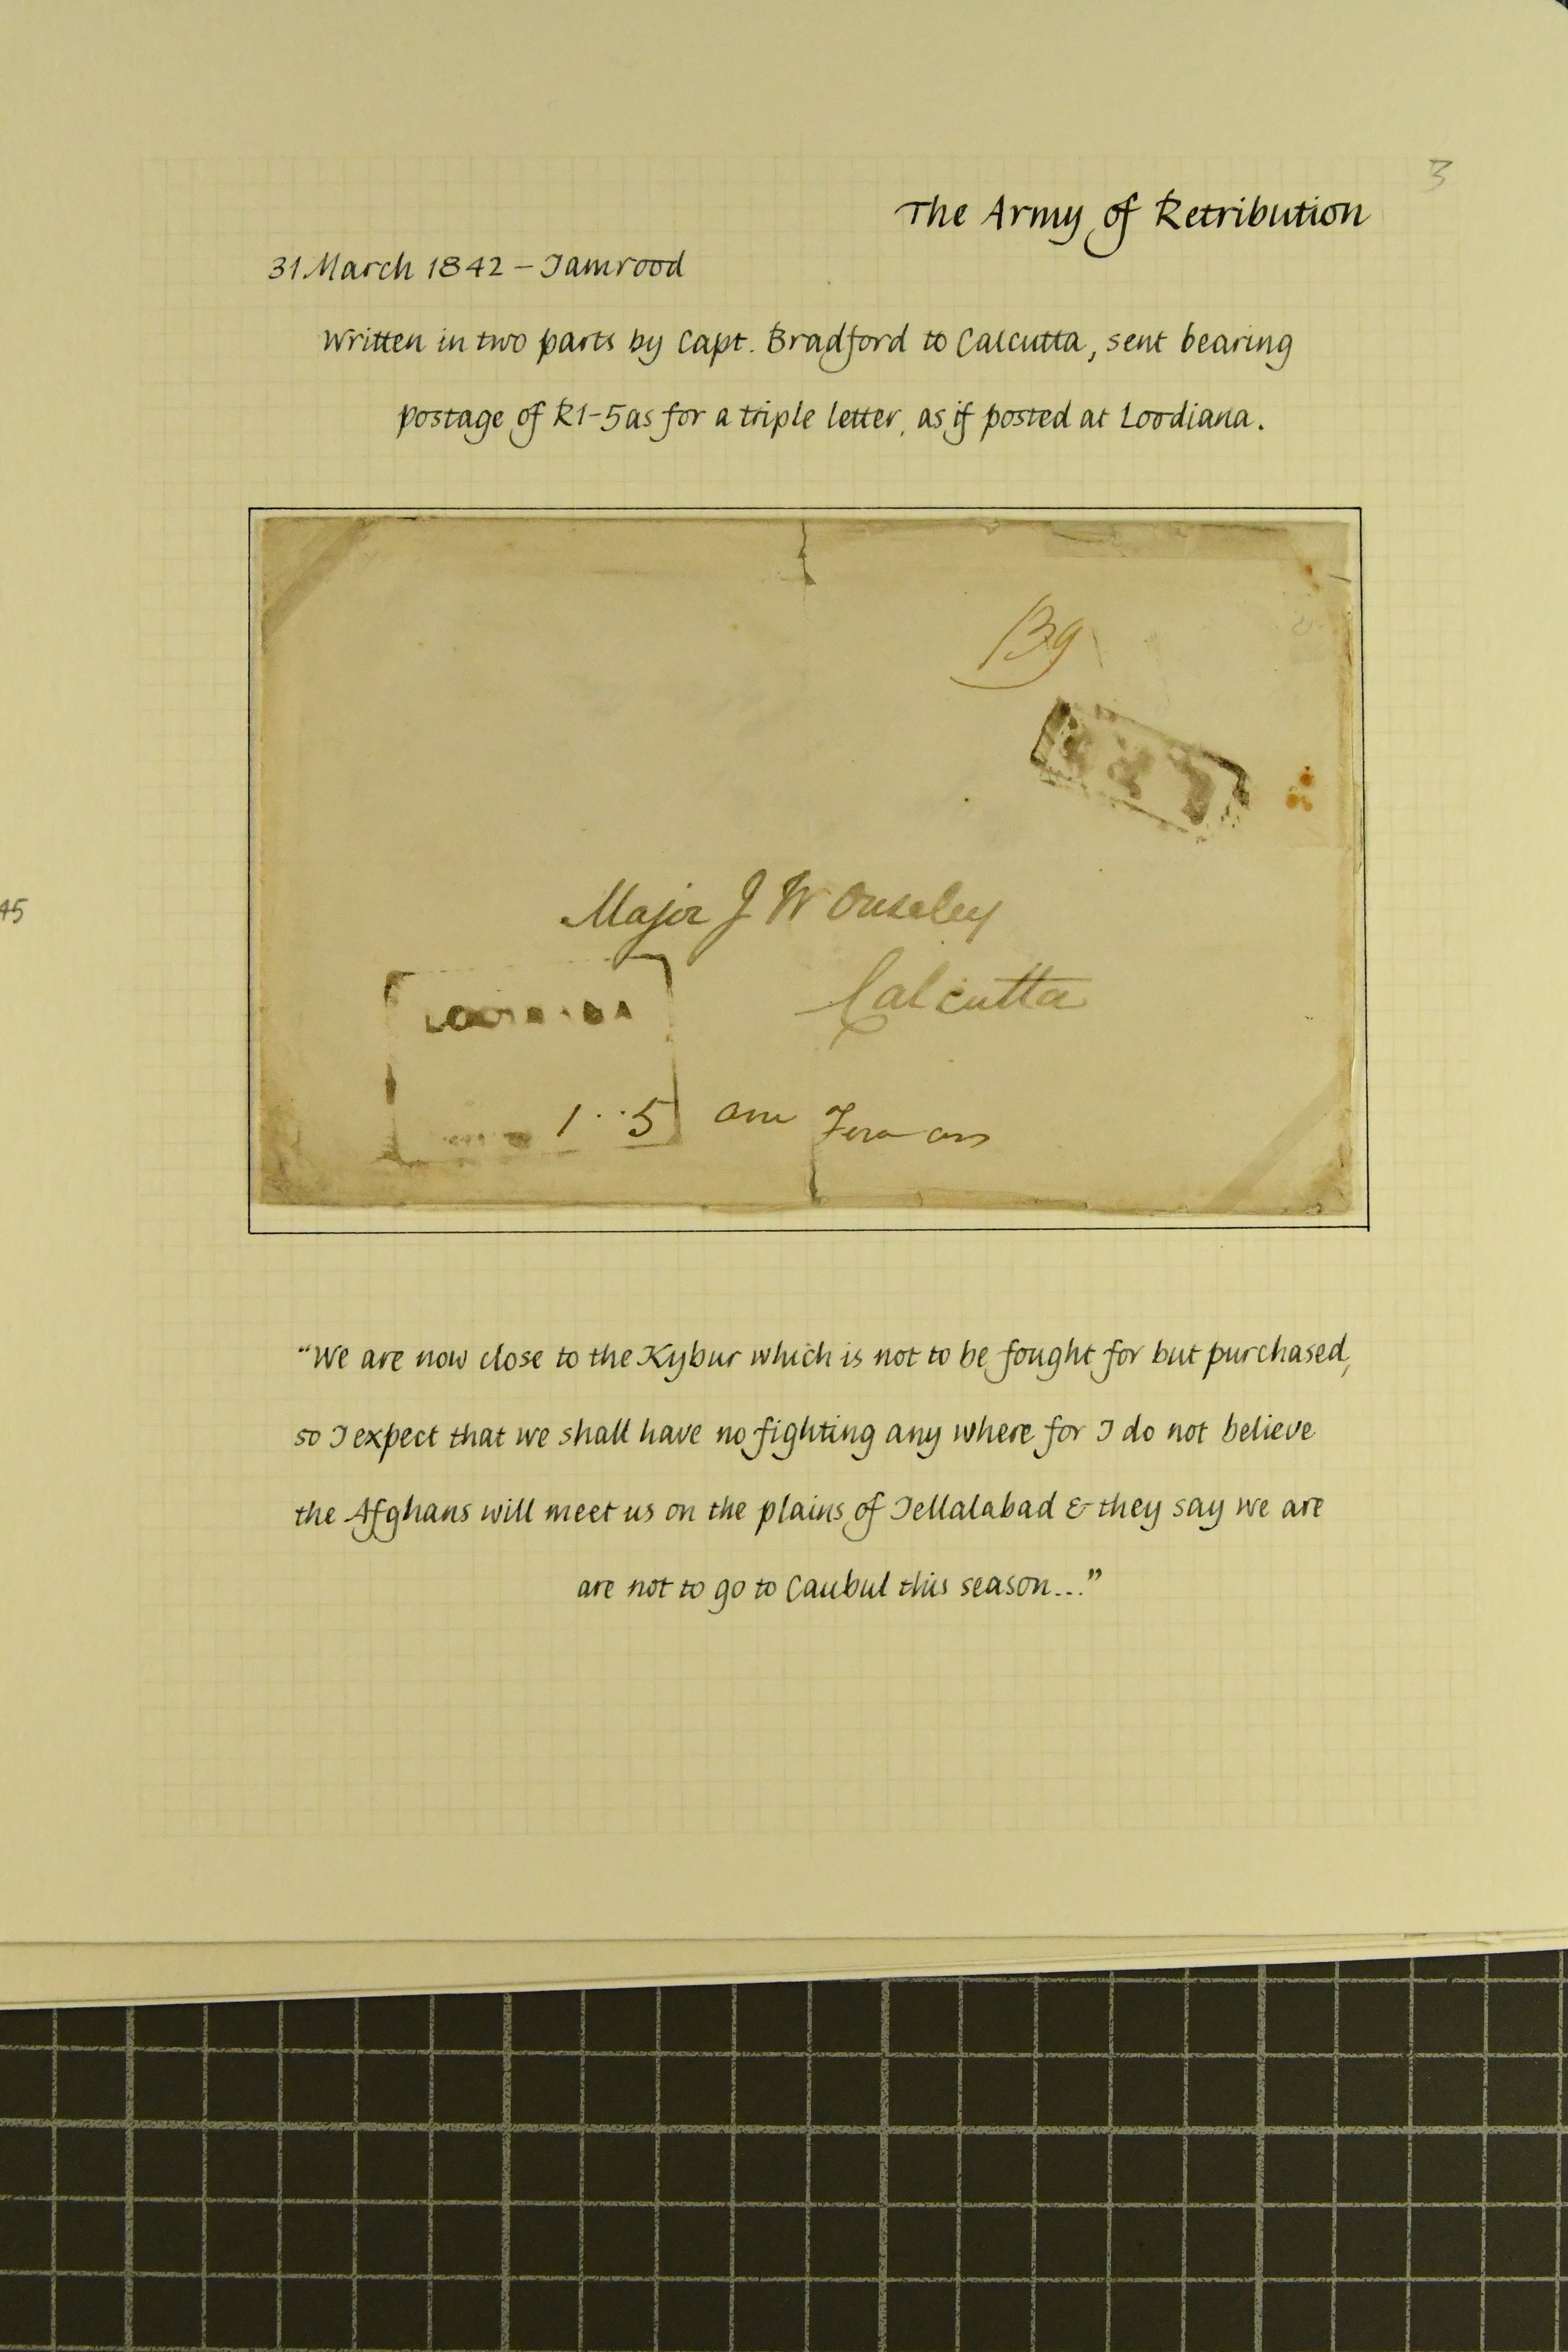 3
The Army of Retribution
31 March 1842 – Jamrood
Written in two parts by Capt. Bradford to Calcutta, sent bearing
postage of R1-5as for a triple letter, as if posted at Loodiana.
Major J W Ouseley
Calcutta
1..5
45
“We are now close to the Kybur which is not to be fought for but purchased,
so I expect that we shall have no fighting any where for I do not believe
the Afghans will meet us on the plains of Jellalabad & they say we are
are not to go to Caubul this season...”